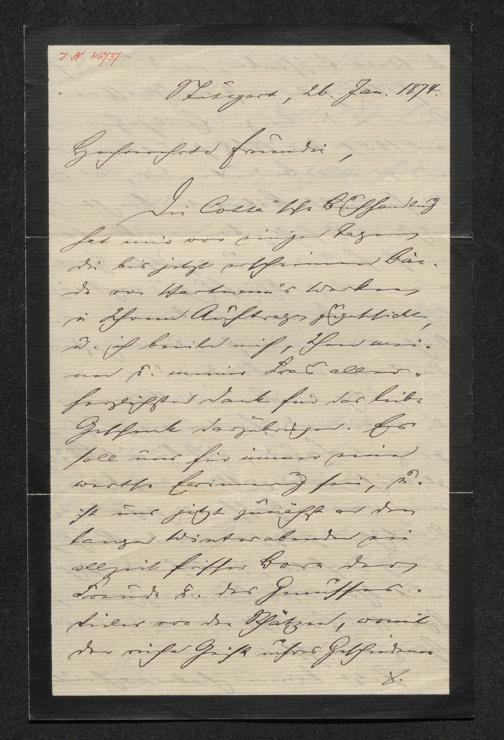 I. N. 46737
Stuttgart, 26. Jan. 1874.
Hochverehrte Freundin,
Die Cotta'sche Buchhandlung
hat mir vor einigen Tagen
die bis jetzt erschienenen Bän-
de von Hartmann's Werken
in Ihrem Auftrage zugeschickt,
u. ich beeile mich, Ihnen mei-
nen u. meiner Frau aller-
herzlichsten Dank für das liebe
Geschenk darzubringen. Es
soll uns für immer eine
werthe Erinnerung sein, u.
ist uns jetzt zunächst an den
langen Winterabenden ein
allzeit frischer Born der
Freude u. des Genusses.
Vieles von den Schätzen, womit
der reiche Geist Ihres Geschiedenen